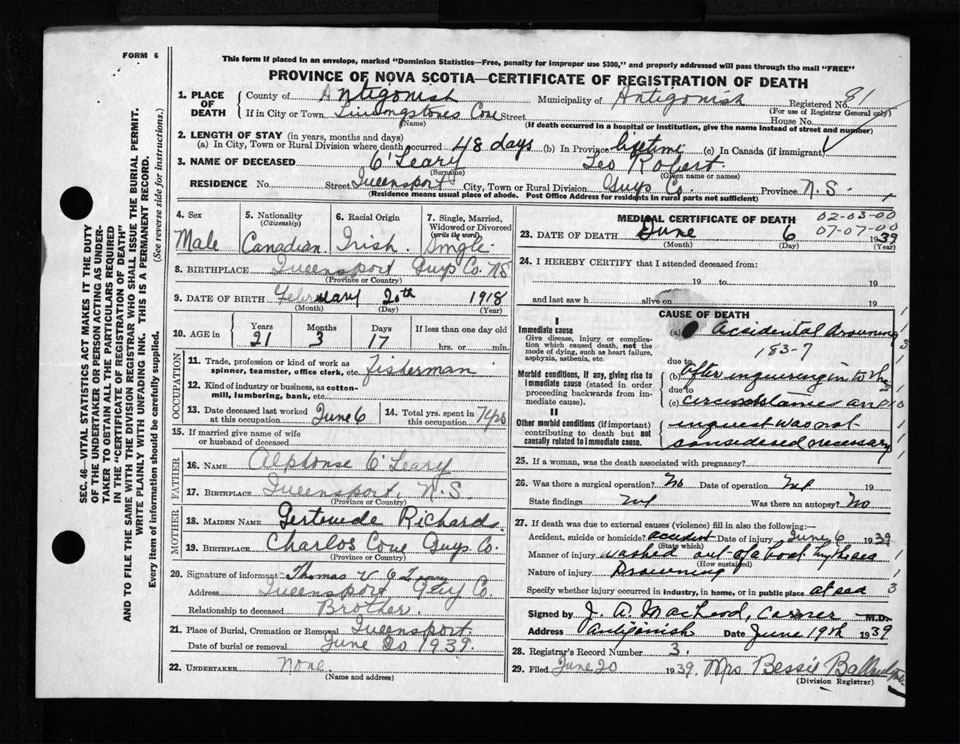 FORM 6
This form if placed in an envelope, marked "Dominion Statistics—Free, penalty for improper use $300," and properly addressed will pass through the mail "FREE"
PROVINCE OF NOVA SCOTIA—CERTIFICATE OF REGISTRATION OF DEATH
SEC. 46—VITAL STATISTICS ACT MAKES IT THE DUTY
OF THE UNDERTAKER OR PERSON ACTING AS UNDER-
TAKER TO OBTAIN ALL THE PARTICULARS REQUIRED
IN THE "CERTIFICATE OF REGISTRATION OF DEATH"
AND TO FILE THE SAME WITH THE DIVISION REGISTRAR WHO SHALL ISSUE THE BURIAL PERMIT.
WRITE PLAINLY WITH UNFADING INK. THIS IS A PERMANENT RECORD.
Every item of information should be carefully supplied. (See reverse side for instructions.)
1. PLACE OF DEATH County of Antigonish Municipality of Antigonish Registered No. 81
(For use of Registrar General only)
If in City or Town Livingstones Cove Street House No.
(Name) (If death occurred in a hospital or institution, give the name instead of street and number)
2. LENGTH OF STAY (in years, months and days)
(a) In City, Town or Rural Division where death occurred 48 days (b) In Province lifetime (c) In Canada (if immigrant)
3. NAME OF DECEASED O'Leary Leo Robert
(Surname) (Given name or names)
RESIDENCE No. Street Queensport City, Town or Rural Division Guys Co. Province N.S.
(Residence means usual place of abode. Post Office Address for residents in rural parts not sufficient)
4. Sex
Male
5. Nationality
(Citizenship)
Canadian
6. Racial Origin
Irish
7. Single, Married,
Widowed or Divorced
(write the word)
Single
8. BIRTHPLACE Queensport Guys Co. N.S.
(Province or Country)
9. DATE OF BIRTH February 20th 1918
(Month) (Day) (Year)
10. AGE in Years Months Days If less than one day old
21 3 17 hrs. or min.
OCCUPATION
11. Trade, profession or kind of work as
spinner, teamster, office clerk, etc. Fisherman
12. Kind of industry or business, as cotton-
mill, lumbering, bank, etc.
13. Date deceased last worked
at this occupation June 6
14. Total yrs. spent in
this occupation 7 yrs
15. If married give name of wife
or husband of deceased
FATHER
16. NAME Alphonse O'Leary
17. BIRTHPLACE Queensport, N.S.
(Province or Country)
MOTHER
18. MAIDEN NAME Gertrude Richards
19. BIRTHPLACE Charlos Cove Guys Co.
(Province or Country)
20. Signature of informant Thomas V O'Leary
Address Queensport Guy Co.
Relationship to deceased Brother.
21. Place of Burial, Cremation or Removal Queensport
Date of burial or removal June 20 1939.
22. UNDERTAKER None.
(Name and address)
MEDICAL CERTIFICATE OF DEATH
02-03-00
07-07-00
23. DATE OF DEATH June 6 1939
(Month) (Day) (Year)
24. I HEREBY CERTIFY that I attended deceased from:
19 to 19
and last saw h alive on 19
CAUSE OF DEATH
I
Immediate cause
Give disease, injury or complica-
tion which caused death, not the
mode of dying, such as heart failure,
asphyxia, asthenia, etc.
(a) accidental drowning
183-7
due to
Morbid conditions, if any, giving rise to
immediate cause (stated in order
proceeding backwards from im-
mediate cause).
(b) After inquiring into the
due to
(c) circumstances an
II
Other morbid conditions (if important)
contributing to death but not
causally related to immediate cause.
inquest was not
considered necessary
25. If a woman, was the death associated with pregnancy?
26. Was there a surgical operation? No Date of operation 19
State findings Was there an autopsy? No
27. If death was due to external causes (violence) fill in also the following:—
Accident, suicide or homicide? accident Date of injury June 6 1939
(State which)
Manner of injury washed out of a boat by the sea
(How sustained)
Nature of injury Drowning
Specify whether injury occurred in industry, in home, or in public place at sea 3
Signed by J. A. MacLeod, Coroner M.D.
Address Antigonish Date June 19th 1939
28. Registrar's Record Number 3.
29. Filed June 20 1939. Mrs Bessie
(Division Registrar)